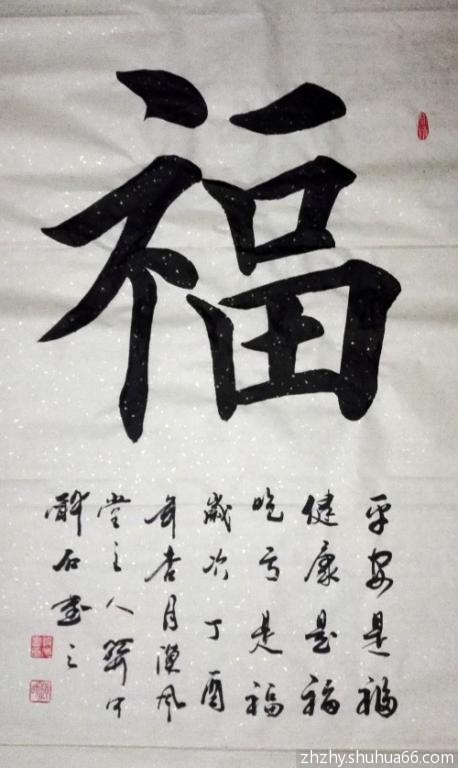 福
平安是福
健康是福
吃亏是福
岁次丁酉
年杏月漢风
堂主人
醉石书之
zhzhy.shuhua66.com